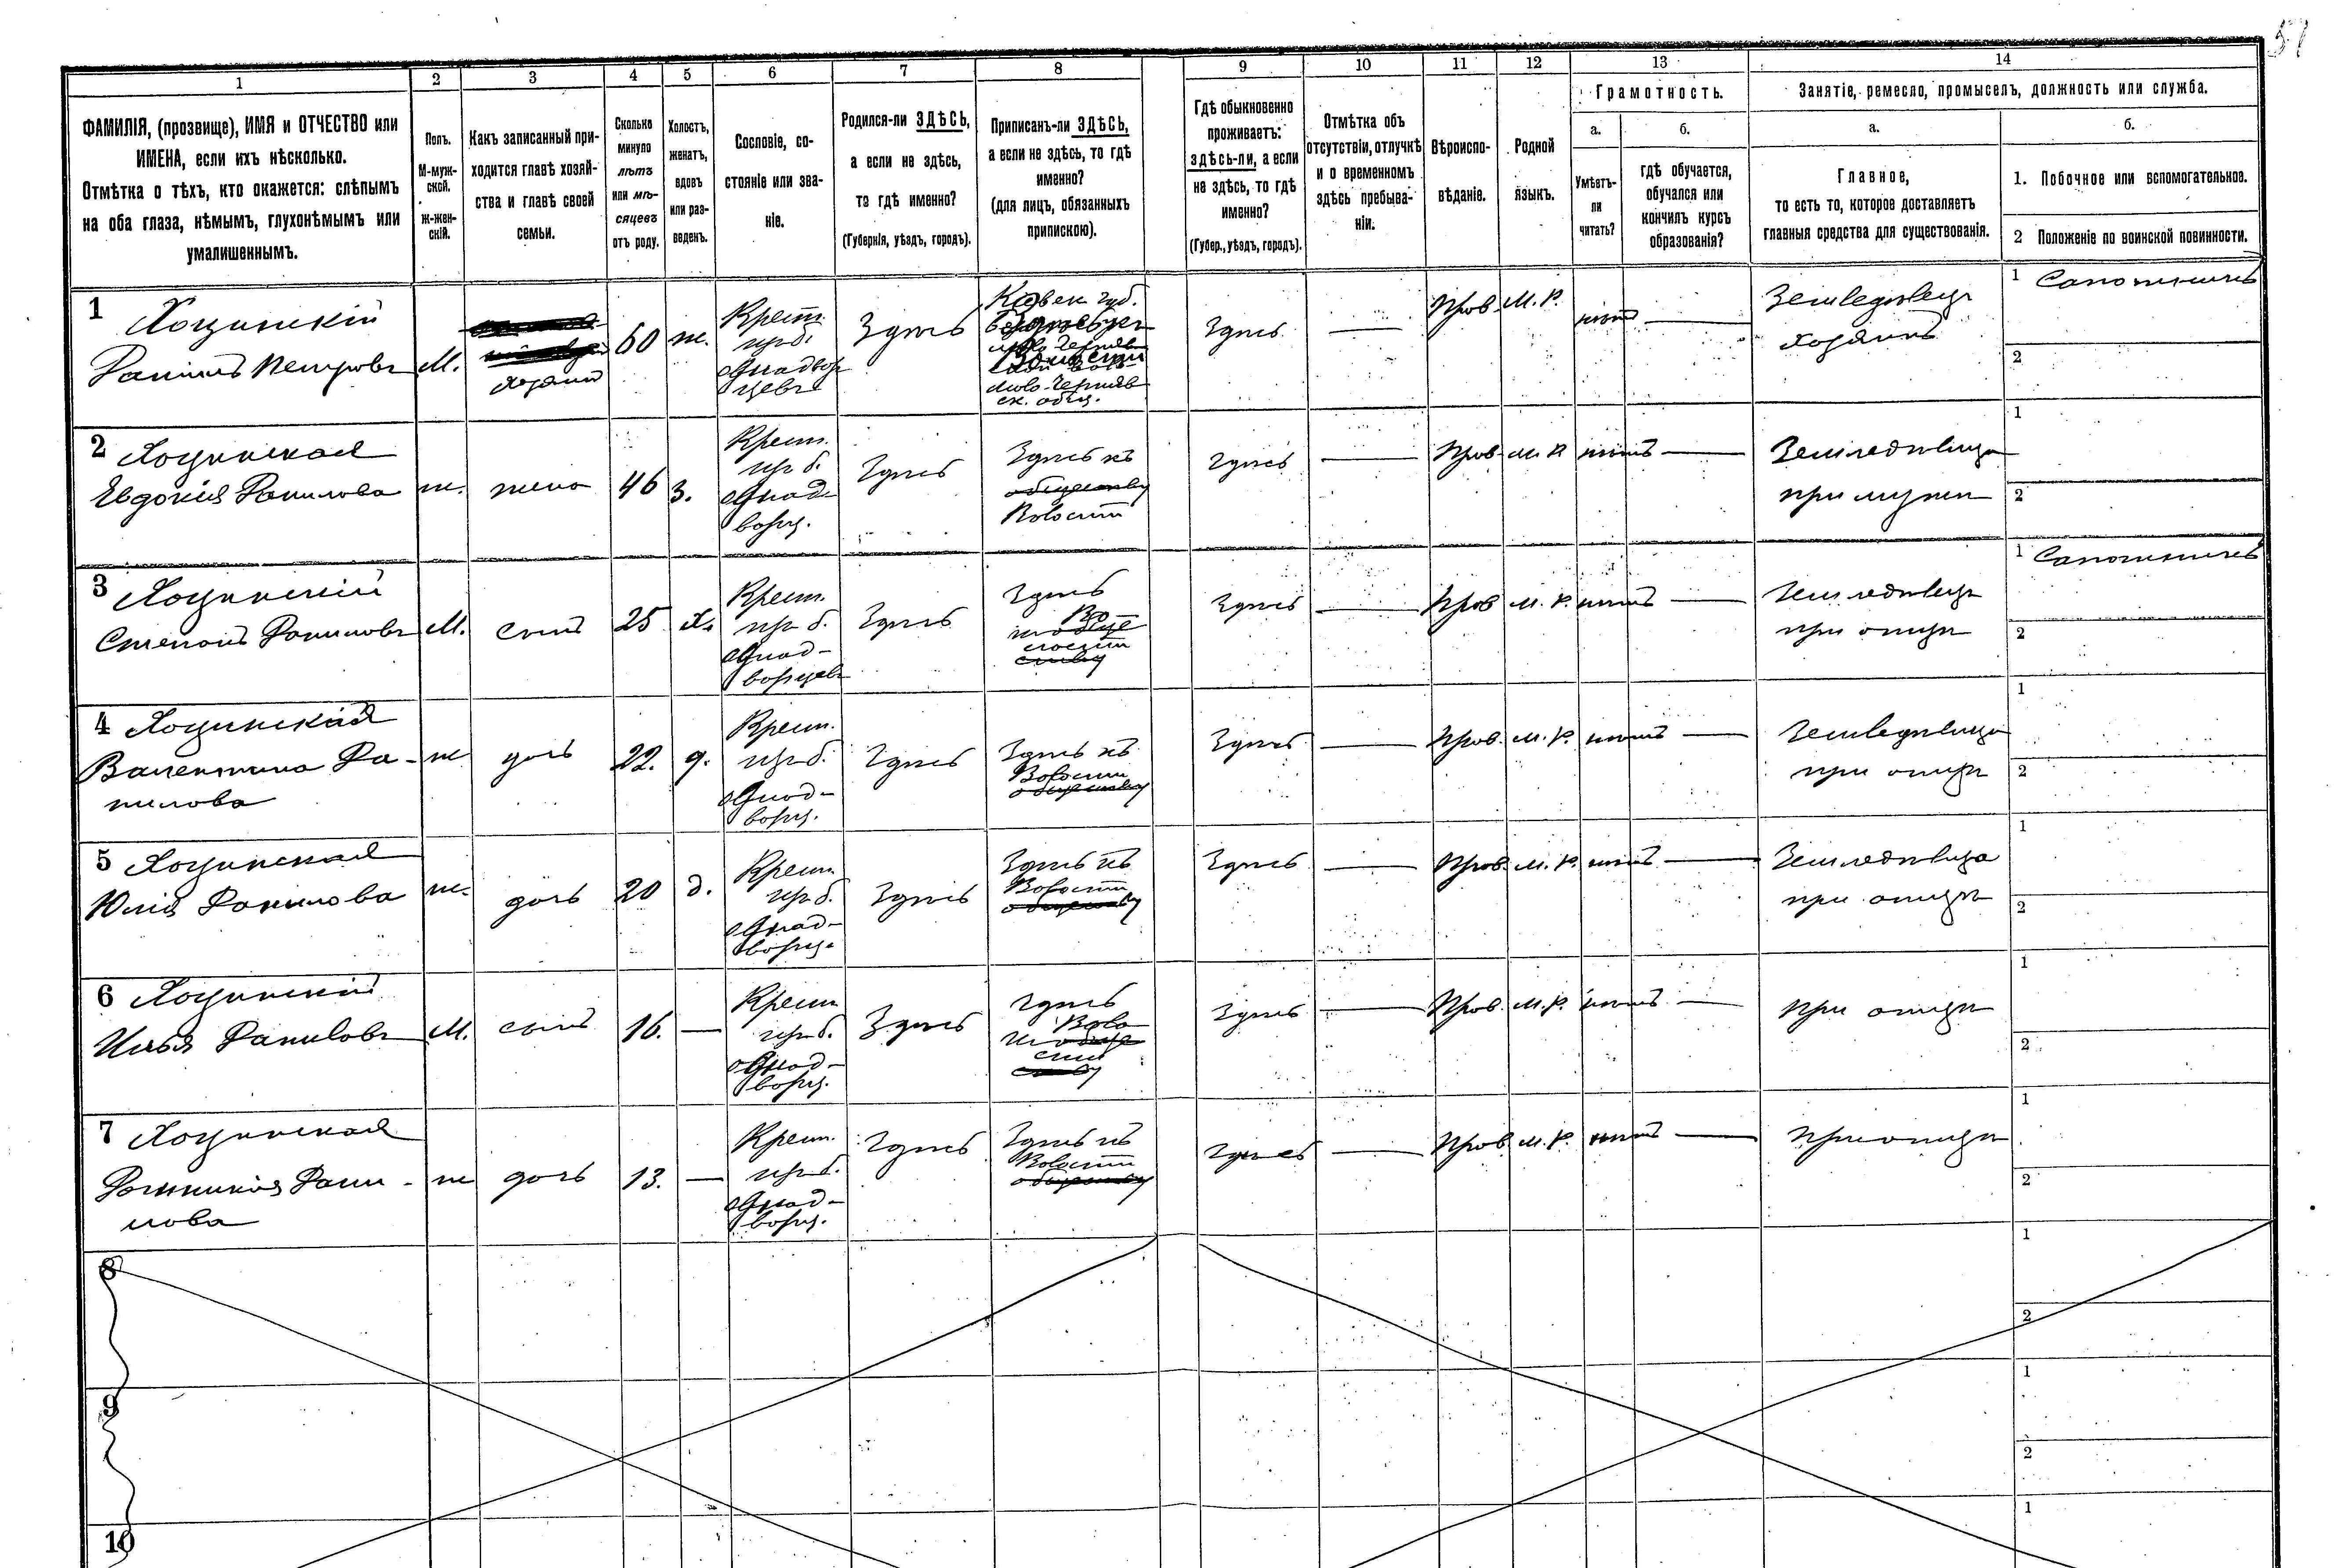 57
1 2 3 4 5 6 7 8 9 10 11 12 13 14
ФАМИЛІЯ, (прозвище), ИМЯ и ОТЧЕСТВО или
ИМЕНА, если ихъ нѣсколько.
Отмѣтка о тѣхъ, кто окажется: слѣпымъ
на оба глаза, нѣмымъ, глухонѣмымъ или
умалишеннымъ.
Полъ.
М-муж-
ской.
Ж-жен-
скій.
Какъ записанный при-
ходится главѣ хозяй-
ства и главѣ своей
семьи.
Сколько
минуло
лѣтъ
или мѣ-
сяцевъ
отъ роду.
Холостъ,
женатъ,
вдовъ
или раз-
веденъ.
Сословіе, со-
стояніе или зва-
ніе.
Родился-ли ЗДѢСЬ,
а если не здѣсь,
то гдѣ именно?
(Губернія, уѣздъ, городъ).
Приписанъ-ли ЗДѢСЬ,
а если не здѣсь, то гдѣ
именно?
(для лицъ, обязанныхъ
припискою).
Гдѣ обыкновенно
проживаетъ:
здѣсь-ли, а если
не здѣсь, то гдѣ
именно?
(Губер., уѣздъ, городъ).
Отмѣтка объ
отсутствіи, отлучкѣ
и о временномъ
здѣсь пребыва-
ніи.
Вѣроиспо-
вѣданіе.
Родной
языкъ.
Грамотность.
а.
Умѣетъ-
ли
читать?
б.
гдѣ обучается,
обучался или
кончилъ курсъ
образованія?
Занятіе, ремесло, промыселъ, должность или служба.
а.
Главное,
то есть то, которое доставляетъ
главныя средства для существованія.
б.
1. Побочное или вспомогательное.
2 Положеніе по воинской повинности.
1 Лощинскій
Данилъ Петровъ
М.
хозяинъ
60
ж.
Крест.
из б.
однодвор
цевъ
Здѣсь
Здѣсь
—
Прав.
М. Р.
нѣтъ
—
Земледѣлецъ
хозяинъ
1 Сапожникъ
2
2 Лощинская
Евдокія Данилова
ж.
жена
46
з.
Крест.
из б.
однод
ворц.
Здѣсь
Здѣсь къ
обществу
Волости
здѣсь
—
Прав.
М. Р.
нѣтъ
—
Земледѣлица
при мужѣ
1
2
3 Лощинскій
Степанъ Даниловъ
М.
сынъ
25
х.
Крест.
из б.
однод-
ворцевъ
Здѣсь
Здѣсь
Здѣсь
—
Прав.
М. Р.
нѣтъ
—
Земледѣлецъ
при отцѣ
1 Сапожникъ
2
4 Лощинская
Валентина Да-
нилова
ж
дочь
22.
д.
Крест.
из б.
однод-
ворц.
Здѣсь
Здѣсь къ
Волости
обществу
Здѣсь
—
Прав.
М. Р.
нѣтъ
—
Земледѣлица
при отцѣ
1
2
5 Лощинская
Юлія Данилова
ж.
дочь
20
д.
Крест.
из б.
однод-
ворц.
Здѣсь
Здѣсь къ
Волости
обществу
Здѣсь
—
Прав.
М. Р.
нѣтъ
—
Земледѣлица
при отцѣ
1
2
6 Лощинскій
Илья Даниловъ
М.
сынъ
16.
—
Крест.
из б.
однод-
ворц.
Здѣсь
здѣсь
Здѣсь
—
Прав.
М. Р.
нѣтъ
—
при отцѣ
1
2
7 Лощинская
Данилова
ж
дочь
13.
—
Крест.
из б.
однод-
ворц.
Здѣсь
Здѣсь къ
Волости
обществу
Здѣсь
—
Прав.
М. Р.
нѣтъ
—
при отцѣ
1
2
8
1
2
9
1
2
10
1